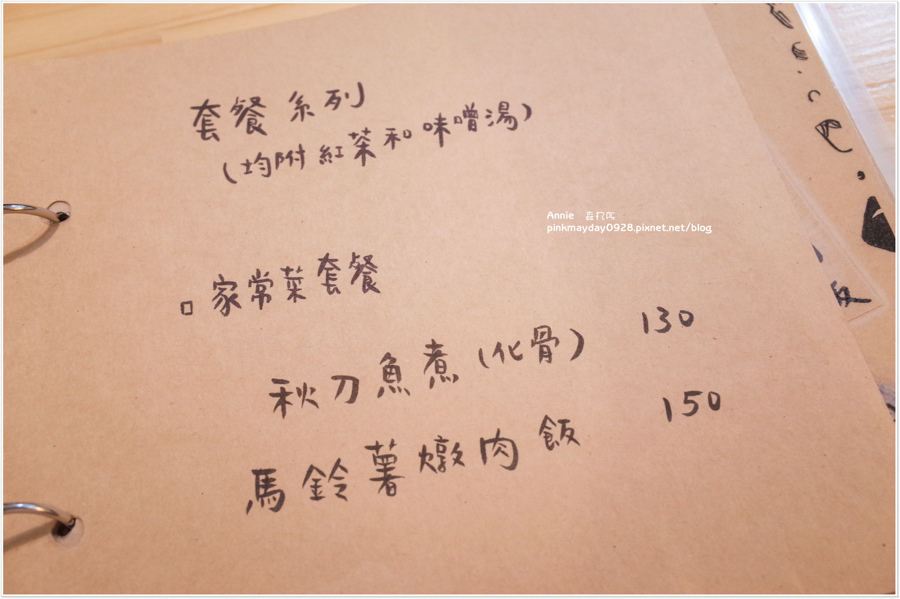 套餐系列
(均附紅茶和味噌湯)
Annie
pinkmayday0928.pixnet.net/blog
□ 家常菜套餐
秋刀魚煮(化骨) 130
馬鈴薯燉肉飯 150